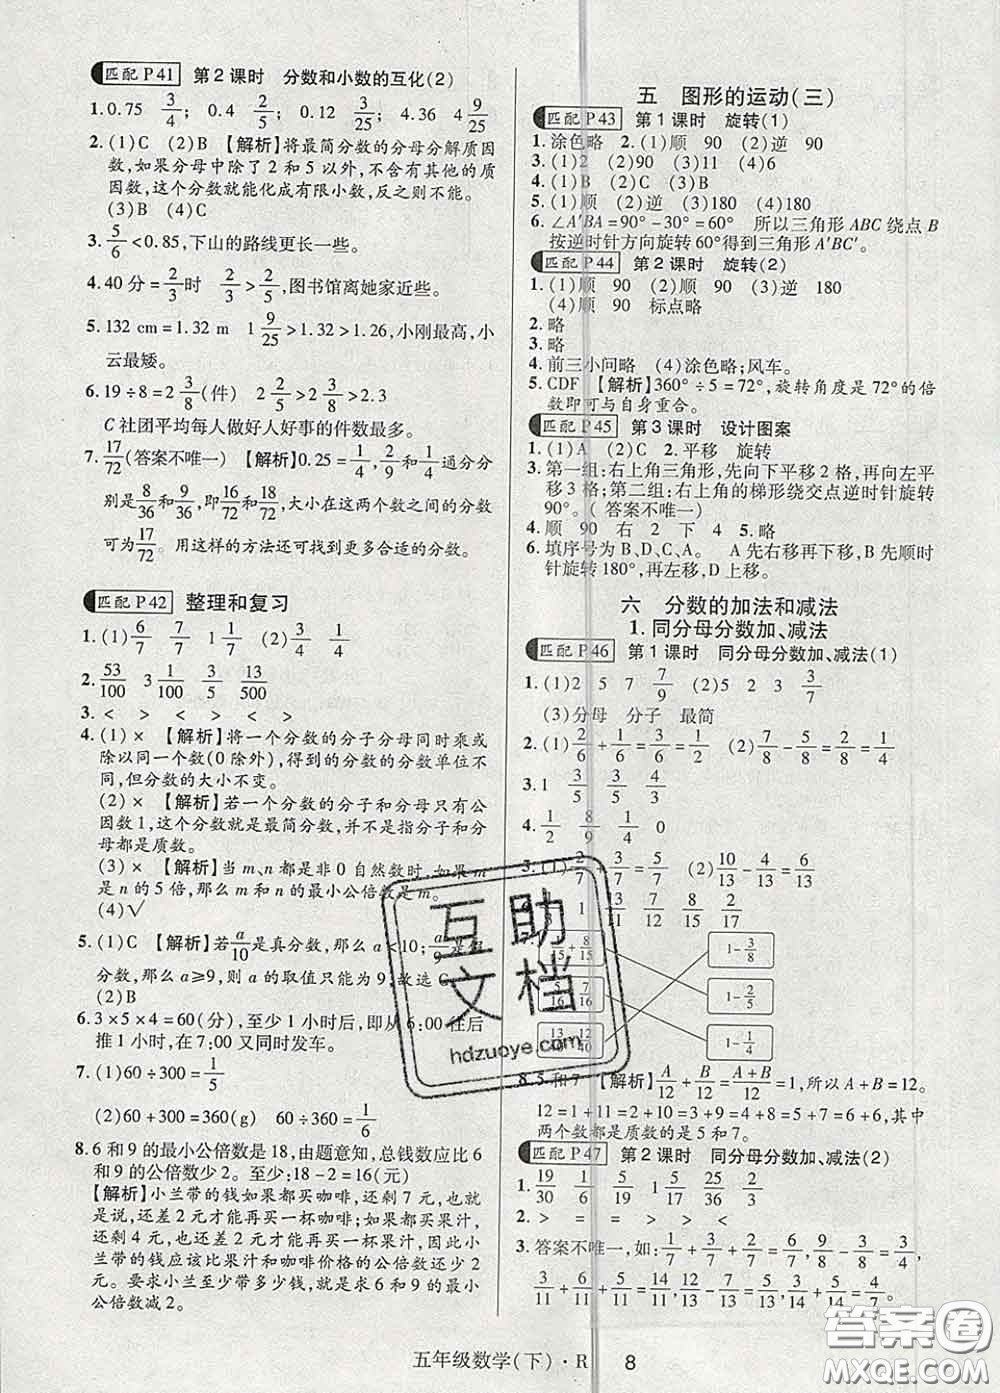 匹配 P41 第2课时 分数和小数的互化(2)
1. 0.75 3/4; 0.4 2/5; 0.12 3/25; 4.36 4 9/25
2. (1)C (2)B 【解析】将最简分数的分母分解质因
数,如果分母中除了2和5以外,不含有其他的质
因数,这个分数就能化成有限小数,反之则不能。
(3)B (4)C
3. 5/6<0.85,下山的路线更长一些。
4. 40分=2/3时 2/3>2/5,图书馆离她家近些。
5. 132 cm=1.32 m 1 9/25>1.32>1.26,小刚最高,小
云最矮。
6. 19÷8=2 3/8(件) 2 2/5>2 3/8>2.3
C社团平均每人做好人好事的件数最多。
7. 17/72(答案不唯一) 【解析】0.25=1/4,2/9和1/4通分分
别是8/36和9/36,即16/72和18/72,大小在这两个数之间的分数
可为17/72。用这样的方法还可找到更多合适的分数。
匹配 P42 整理和复习
1. (1)6/7 7/7 1 1/7 (2)3/4 1/4
2. 53/100 3 1/100 1/5 13/500
3. < > < > < >
4. (1)× 【解析】将一个分数的分子分母同时乘或
除以同一个数(0除外),得到的分数的分数单位不
同,但分数的大小不变。
(2)× 【解析】若一个分数的分子和分母只有公
因数1,这个分数就是最简分数,并不是指分子和分
母都是质数。
(3)× 【解析】当m、n都是非0自然数时,如果m
是n的5倍,那么m和n的最小公倍数是m。
(4)√
5. (1)C 【解析】若a/10是真分数,那么a<10;a/9是假
分数,那么a≥9,则a的取值只能为9,故选C。
(2)B
6. 3×5×4=60(分),至少1小时后,即从6:00往后
推1小时,在7:00又同时发车。
7. (1)60÷300=1/5
(2)60+300=360(g) 60÷360=1/6
8. 6和9的最小公倍数是18,由题意知,总钱数应比6
和9的公倍数少2。至少:18-2=16(元)
【解析】小兰带的钱如果都买咖啡,还剩7元,也就
是说,还差2元才能再买一杯咖啡;如果都买果汁,
还剩4元,也就是说,还差2元才能再买一杯果汁,
小兰带的钱应该比果汁和咖啡价格的公倍数还少2
元。要求小兰至少带多少钱,就是求6和9的最小
公倍数减2。
五 图形的运动(三)
匹配 P43 第1课时 旋转(1)
1. 涂色略 (1)顺 90 (2)逆 90
3. (1)2 (2)90 (3)11 (4)6
4. (1)B (2)C (3)B
5. (1)顺 (2)逆 (3)180 (4)180
6. ∠A′BA=90°-30°=60° 所以三角形ABC绕点B
按逆时针方向旋转60°得到三角形A′BC′。
匹配 P44 第2课时 旋转(2)
1. (1)顺 90 (2)顺 90 (3)逆 180
(4)顺 90 标点略
2. 略
3. 略
4. 前三小问略 (4)涂色略;风车。
5. CDF 【解析】360°÷5=72°,旋转角度是72°的倍
数即可与自身重合。
匹配 P45 第3课时 设计图案
1. (1)A (2)C 2. 平移 旋转
3. 第一组:右上角三角形,先向下平移2格,再向左平
移3格;第二组:右上角的梯形绕交点逆时针旋转
90°。(答案不唯一)
4. 顺 90 右 2 下 4 5. 略
6. 填序号为B、D、C、A。 A先右移再下移,B先顺时
针旋转180°,再左移,D上移。
六 分数的加法和减法
1. 同分母分数加、减法
匹配 P46 第1课时 同分母分数加、减法(1)
1. (1)2 5 7 7/9 (2)5 2 3 3/7
(3)分母 分子 最简
2. (1)2/6+1/6=3/6=1/2 (2)7/8-5/8=2/8=1/4
3. 1 3/5 3/5 1/4
4. 1/2 8/9 1/4 0
2/7+3/7=5/7 (2)10/13-4/13=6/13
1 3/5 7/12 8/15 2/9
1/15+8/15
1-3/8
5/16 7/16
1-2/5
1-1/4
8. 5和7 【解析】A/12+B/12=(A+B)/12=1,所以A+B=12。
12=1+11=2+10=3+9=4+8=5+7=6+6,其中
两个数都是质数的是5和7。
匹配 P47 第2课时 同分母分数加、减法(2)
1. 19/30 1/6 5/19 1 5/8 25/36 2/23 1/4
2. > = = > < =
3. 答案不唯一,如:1/7+2/7+3/7=6/7,9/4-3/4-3/4=3/4,
3/11+5/11+6/11=14/11,13/12-1/12-5/12=7/12,5/14+6/14-4/14=7/14
五年级数学(下)·R 8
互助文档
hdzuoye.com
答案圈
MXQE.COM